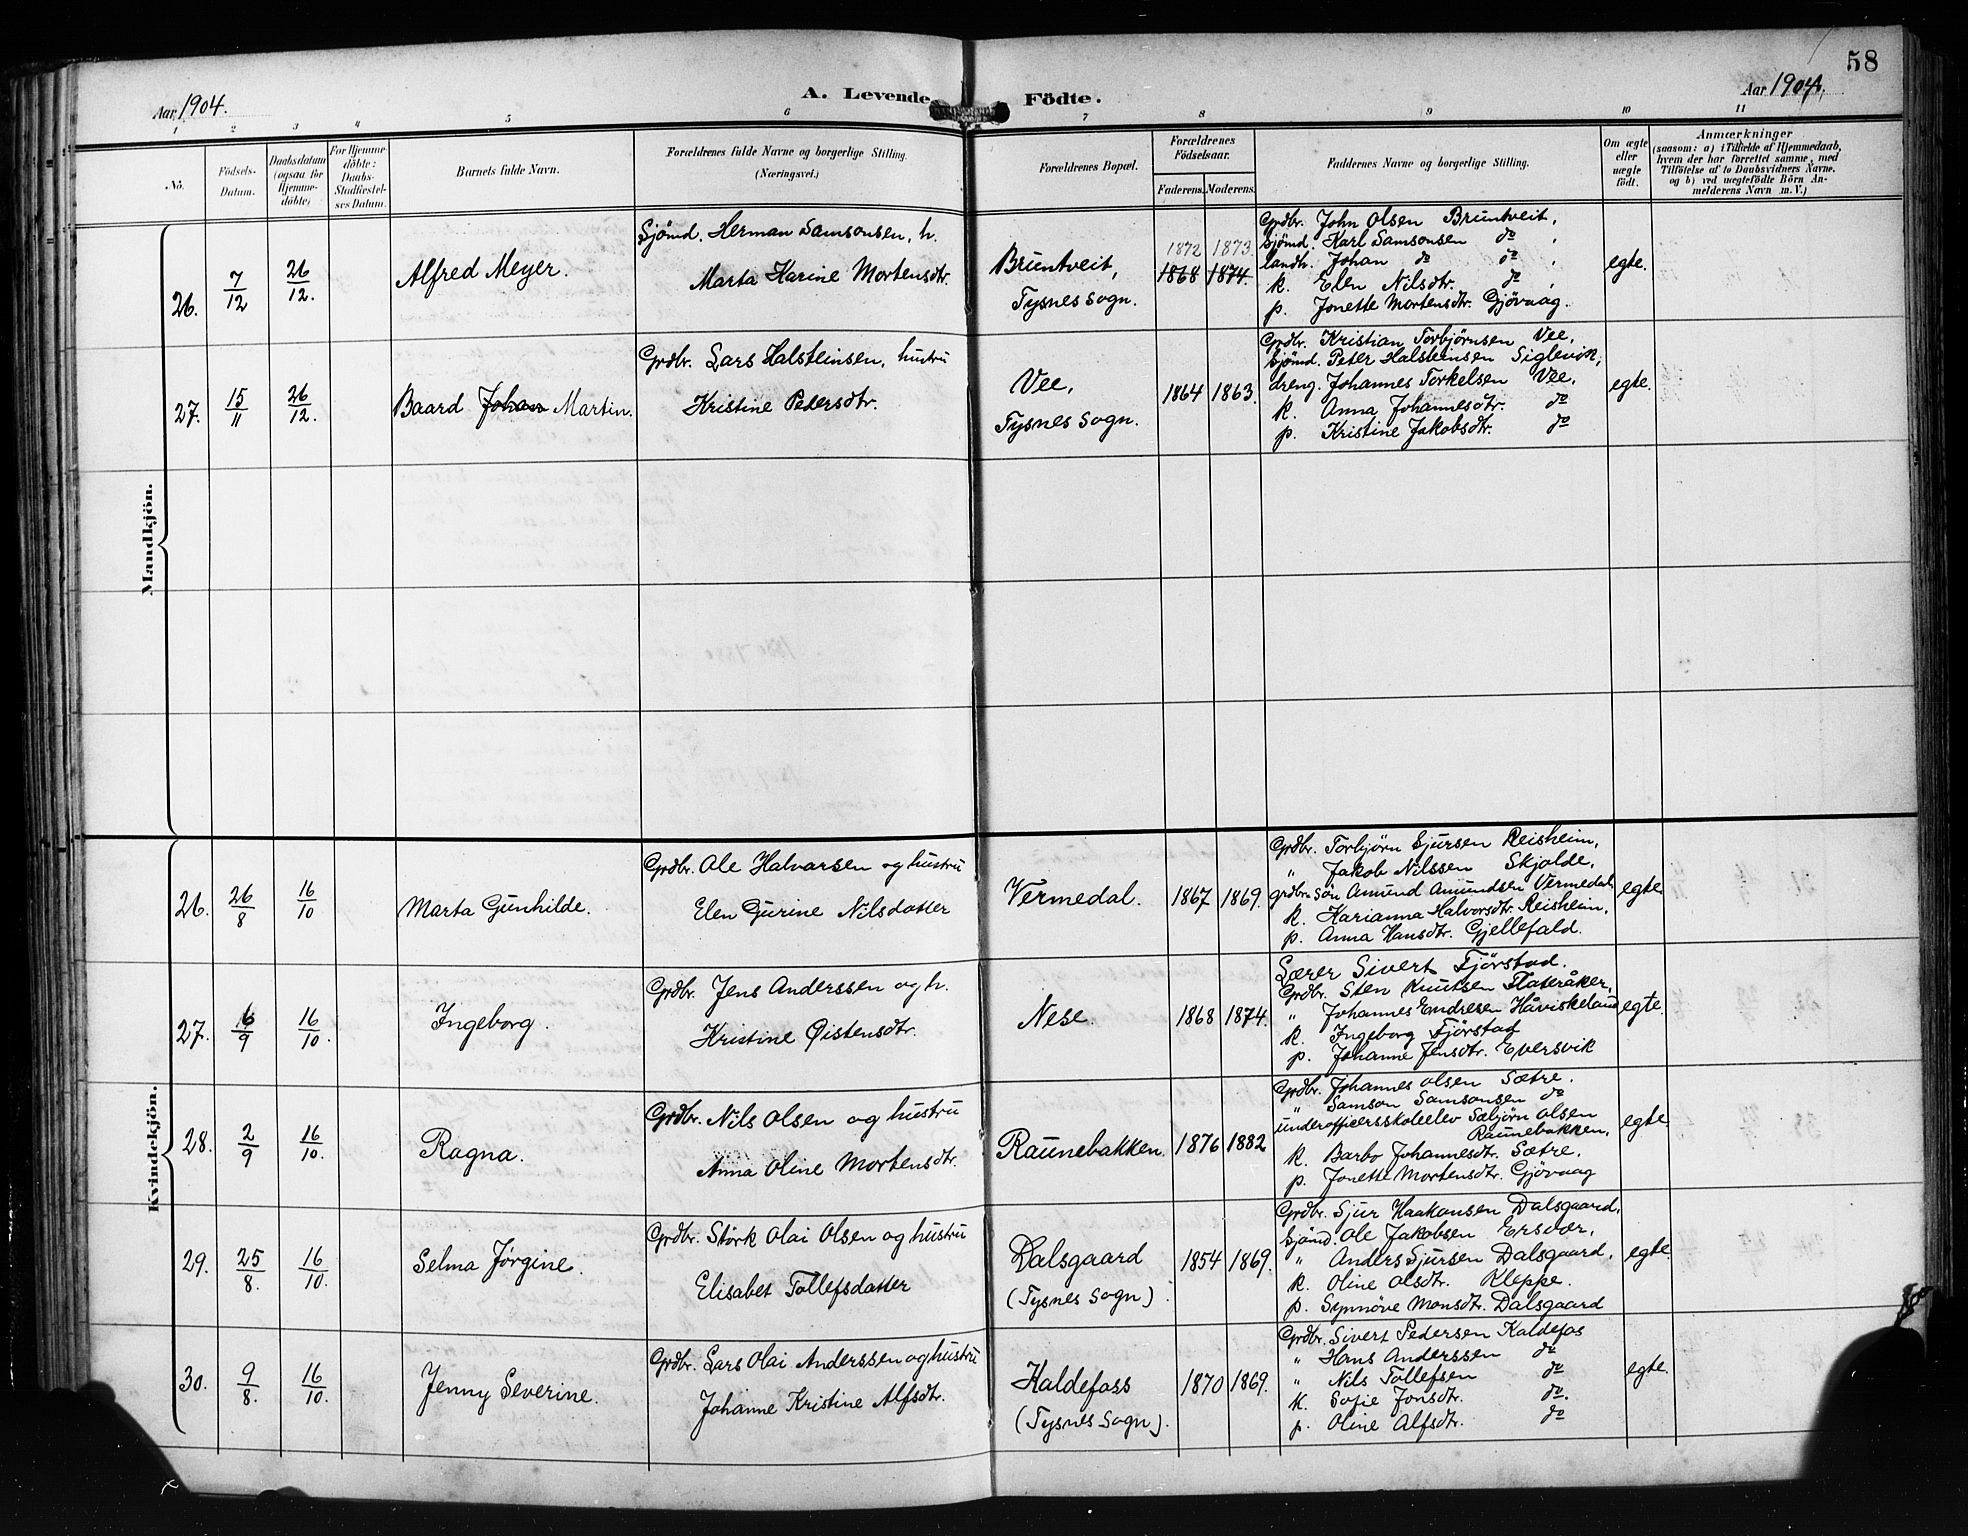 58
Aar 1904.
A. Levende Födte.
Aar 1904.
1 2 3 4 5 6 7 8 9 10 11
No.
Födsels-Datum.
Daabsdatum (ogsaa for Hjemme-döbte)
For Hjemme-döbte: Daabs-Stadfæstel-ses Datum.
Barnets fulde Navn.
Forældrenes fulde Navne og borgerlige Stilling. (Næringsvei.)
Forældrenes Bopæl.
Forældrenes Födselsaar.
Faderens. Moderens.
Faddernes Navne og borgerlige Stilling.
Om ægte eller uægte födt.
Anmærkninger
(saasom: a) i Tilfælde af Hjemmedaab, hvem der har forrettet samme, med Tilföielse af to Daabsvidners Navne, og b) ved uægtefödte Börn An-melderens Navn m. V.)
Mandkjön.
26. 7/12 26/12. Alfred Meyer.
Sjömd. Herman Samsonsen, h.
Marta Karine Mortensdtr.
Bruntveit,
Tysnes sogn.
1872 1873
1868 1874.
Grdbr. John Olsen Bruntveit,
Sjömd. Karl Samsonsen do,
landh. Johan do do,
k. Elen Nilsdtr. do,
p. Jonette Mortensdtr. Gjövaag.
egte.
27. 15/11 26/12. Baard Johan Martin.
Grdbr. Lars Halsteinsen, hustru
Kristine Pedersdtr.
Vee,
Tysnes sogn.
1864 1863.
Grdbr. Kristian Torbjørnsen Vee,
Sjömd. Peter Halsteinsen Siglevik,
dreng. Johannes Torkelsen Vee,
k. Anna Johannesdtr. do
p. Kristine Jakobsdtr. do
egte.
Kvindekjön.
26. 26/8 16/10 Marta Gunhilde.
Grdbr. Ole Halvarsen og hustru
Elen Gurine Nilsdatter
Vermedal. 1867 1869.
Grdbr. Torbjørn Sjursen Reisheim,
" Jakob Nilssen Skjolde,
grdbr. søn Amund Amundsen Vermedal,
k. Karianna Halvorsdtr. Reisheim,
p. Anna Hansdtr. Gjellefald.
egte
27. 6/9 16/10. Ingeborg.
Grdbr. Jens Anderssen og h.
Kristine Øistensdtr.
Nese. 1868 1874.
Lærer Sivert Fjörstad.
Grdbr. Sten Knutsen Flateråker,
" Johannes Endresen Håviskeland
k. Ingeborg Fjörstad
p. Johanne Jensdtr. Eversvik
egte.
28. 2/9 16/10. Ragna.
Grdbr. Nils Olsen og hustru
Anna Oline Mortensdtr.
Raunebakken. 1876 1882
Grdbr. Johannes Olsen Sætre.
" Samson Samsonsen do
underofficersskoleelev Sæbjörn Olsen
Raunebakken,
k. Barbo Johannesdtr. Sætre,
p. Jonette Mortensdtr. Gjövaag
egte
29. 25/8. 16/10. Selma Jørgine.
Grdbr. Störk Olai Olsen og hustru
Elisabet Tollefsdatter
Dalsgaard
(Tysnes sogn).
1854 1869.
Grdbr. Sjur Haakonsen Dalsgaard,
Sjömd. Ole Jakobsen Ersvær,
" Anders Sjursen Dalsgaard,
k. Oline Olsdtr. Kleppe.
p. Synnöve Monsdtr. Dalsgaard
egte.
30. 9/8. 16/10. Jenny Severine.
Grdbr. Lars Olai Anderssen og hustru
Johanne Kristine Alfsdtr.
Kaldefoss
(Tysnes sogn).
1870 1869.
Grdbr. Sivert Pedersen Kaldefos
" Hans Anderssen do
" Nils Tollefsen do
k. Sofie Jonsdtr. do.
p. Oline Alfsdtr. do
egte.